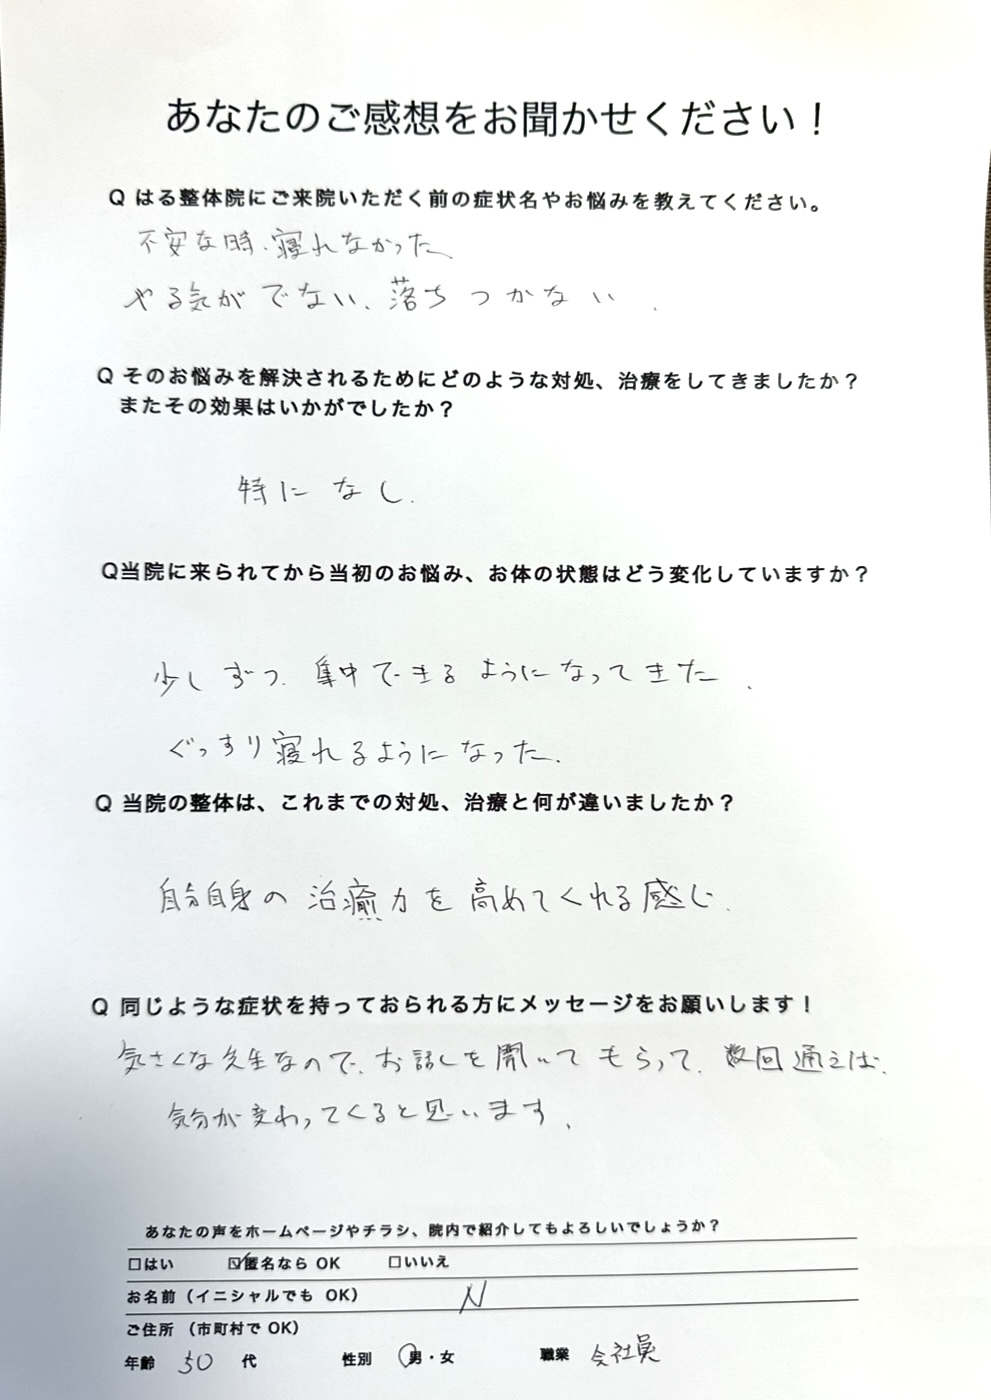 あなたのご感想をお聞かせください！
Q はる整体院にご来院いただく前の症状名やお悩みを教えてください。
不安な時、寝れなかった
やる気がでない、落ちつかない．
Q そのお悩みを解決されるためにどのような対処、治療をしてきましたか？
またその効果はいかがでしたか？
特になし．
Q当院に来られてから当初のお悩み、お体の状態はどう変化していますか？
少しずつ、集中できるようになってきた．
ぐっすり寝れるようになった．
Q 当院の整体は、これまでの対処、治療と何が違いましたか？
自分自身の治癒力を高めてくれる感じ．
Q 同じような症状を持っておられる方にメッセージをお願いします！
気さくな先生なので、お話しを聞いてもらって、数回通えば、
気分が変わってくると思います、
あなたの声をホームページやチラシ、院内で紹介してもよろしいでしょうか？
□はい ☑匿名なら OK □いいえ
お名前（イニシャルでも OK） N
ご住所 （市町村で OK）
年齢 50 代 性別 男・女 職業 会社員